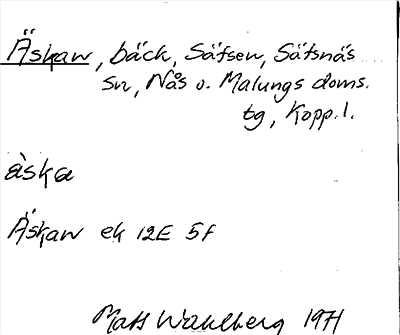 Äskan, bäck, Säfsen, Säfsnäs
sn, Nås o. Malungs doms.
tg, Kopp. l.
àska
Äskan ek 12E 5f
Mats Wahlberg 1971